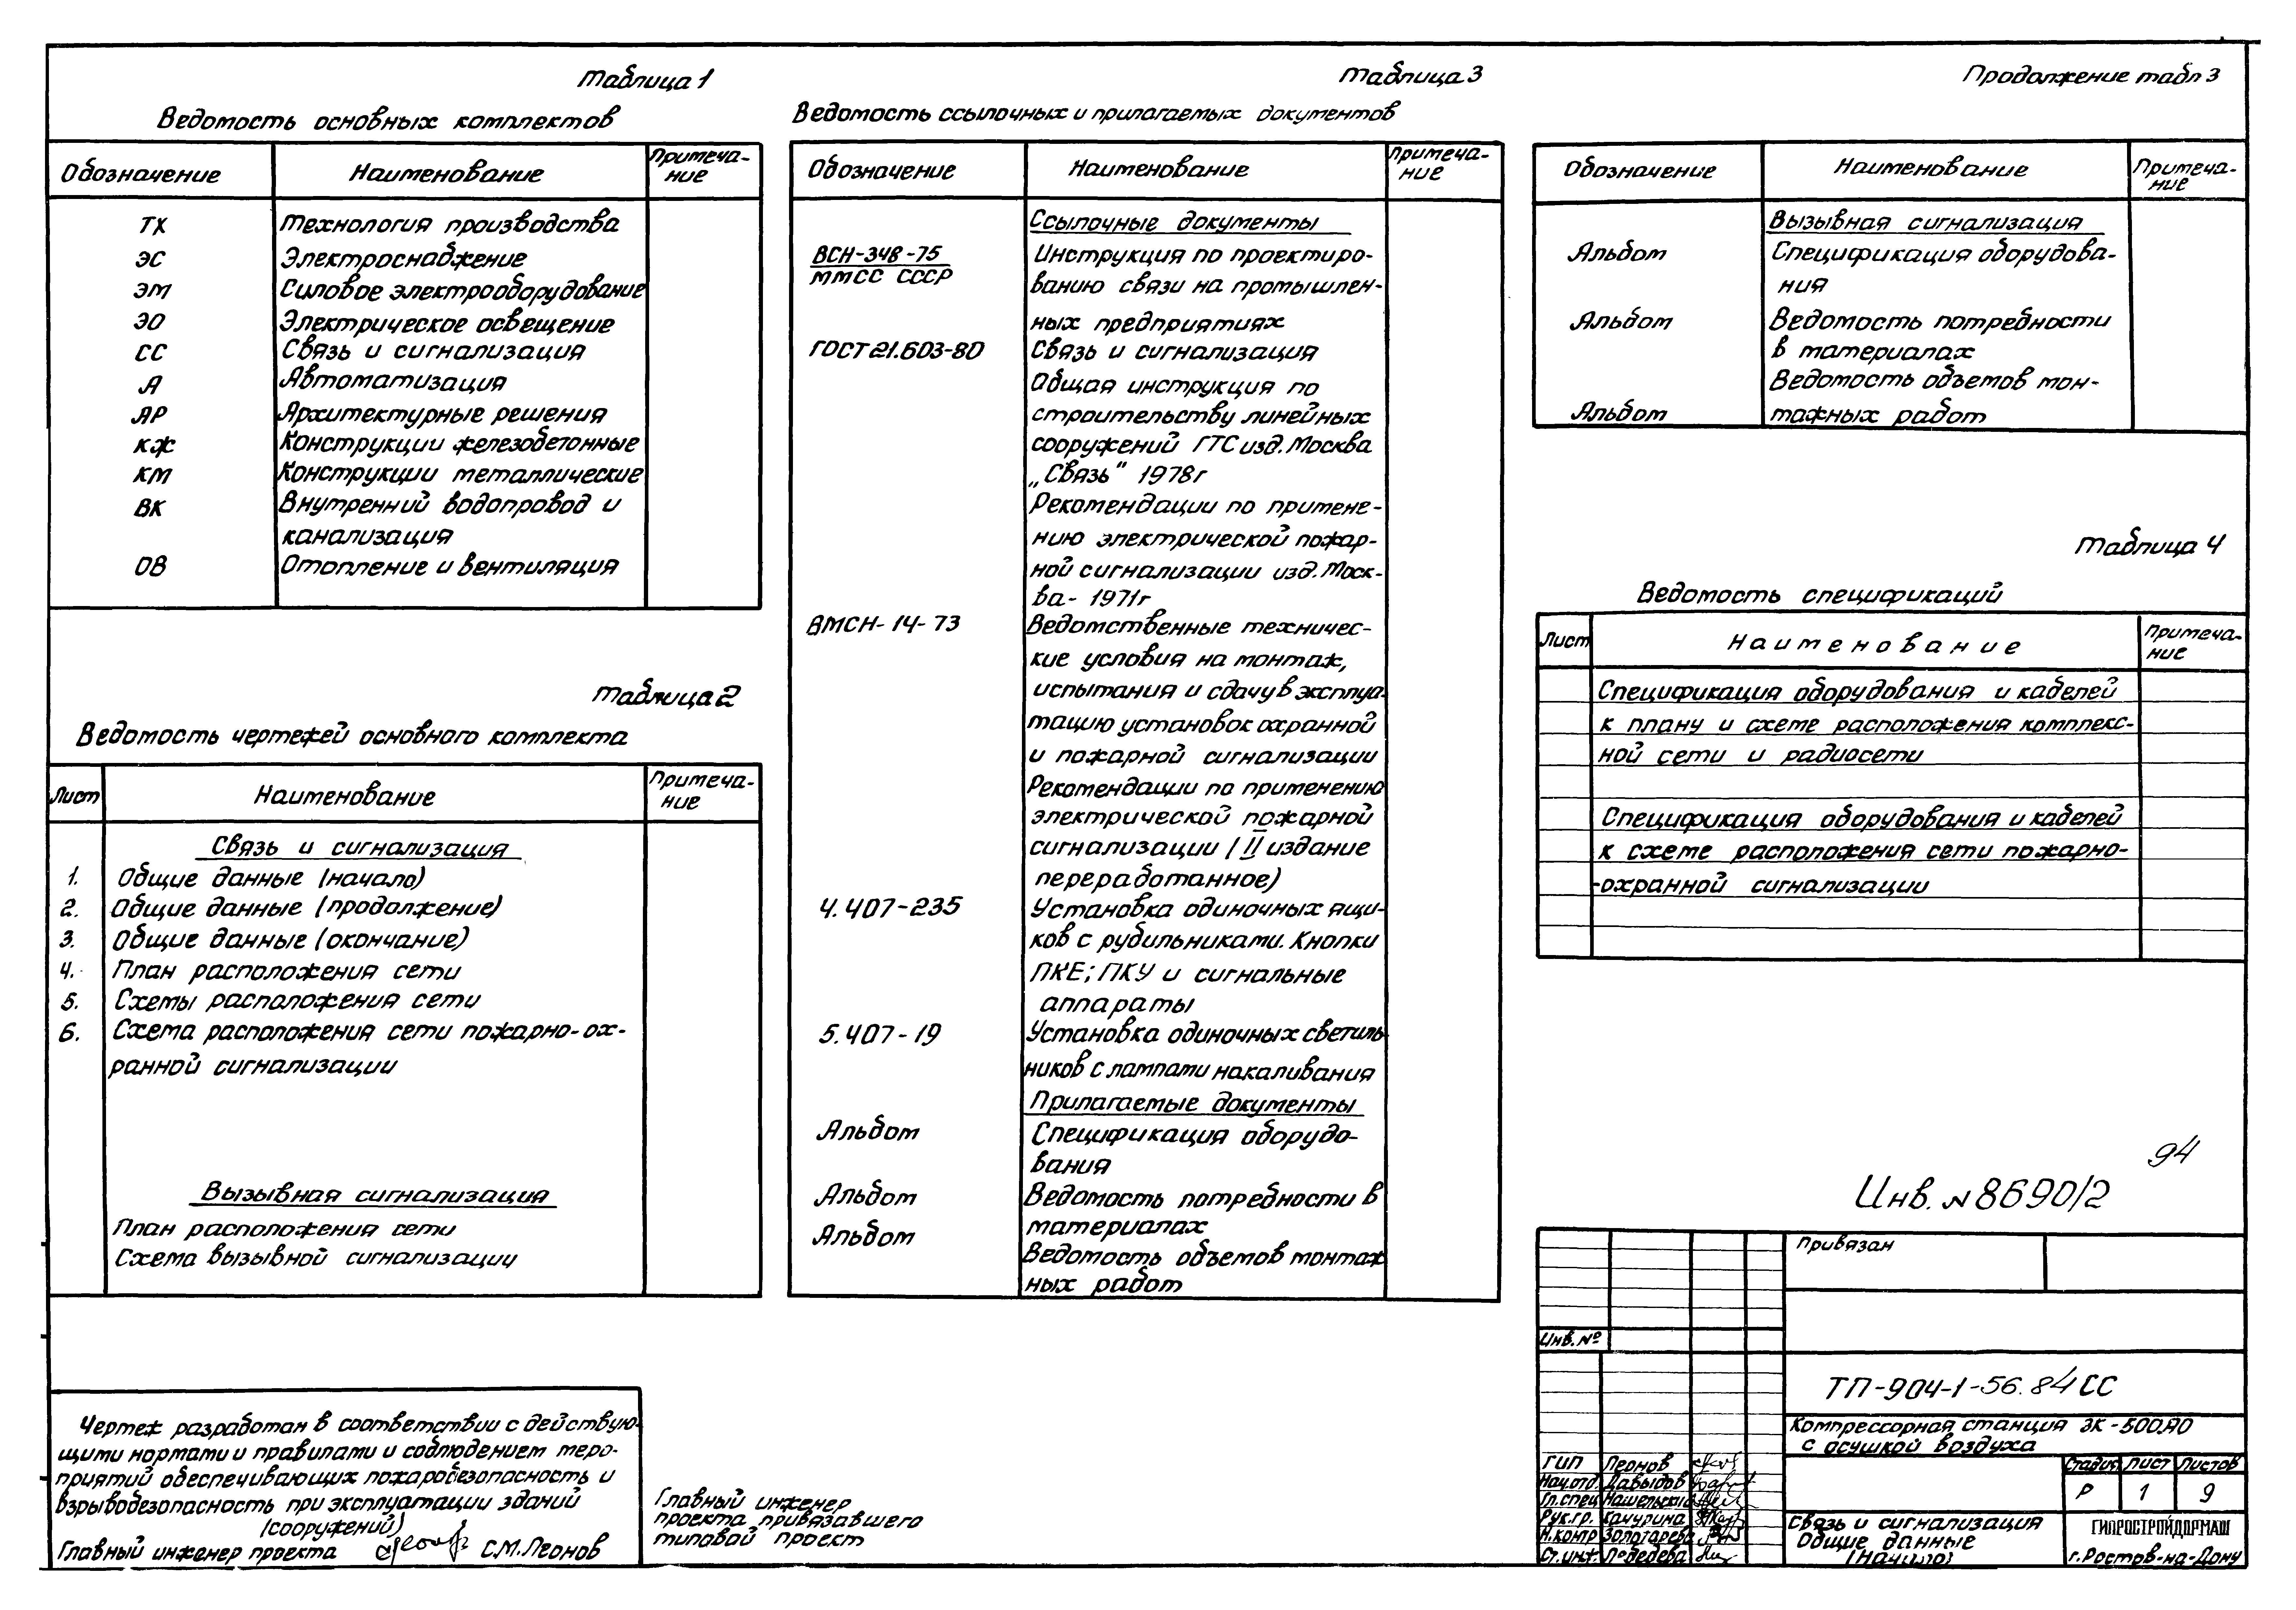 Таблица 1
Ведомость основных комплектов
Обозначение Наименование Примеча-
ние
ТХ Технология производства
ЭС Электроснабжение
ЭМ Силовое электрооборудование
ЭО Электрическое освещение
СС Связь и сигнализация
А Автоматизация
АР Архитектурные решения
КЖ Конструкции железобетонные
КМ Конструкции металлические
ВК Внутренний водопровод и
канализация
ОВ Отопление и вентиляция
Таблица 2
Ведомость чертежей основного комплекта
Лист Наименование Примеча-
ние
Связь и сигнализация
1. Общие данные (начало)
2. Общие данные (продолжение)
3. Общие данные (окончание)
4. План расположения сети
5. Схемы расположения сети
6. Схема расположения сети пожарно-ох-
ранной сигнализации
Вызывная сигнализация
План расположения сети
Схема вызывной сигнализации
Чертеж разработан в соответствии с действую-
щими нормами и правилами и соблюдением меро-
приятий обеспечивающих пожаробезопасность и
взрывобезопасность при эксплуатации зданий
(сооружений)
Главный инженер проекта С.М.Леонов
Главный инженер
проекта привязавшего
типовой проект
Таблица 3
Ведомость ссылочных и прилагаемых документов
Обозначение Наименование Примеча-
ние
Ссылочные документы
ВСН-348-75 Инструкция по проектиро-
ММСС СССР ванию связи на промышлен-
ных предприятиях
ГОСТ 21.603-80 Связь и сигнализация
Общая инструкция по
строительству линейных
сооружений ГТС изд. Москва
„Связь" 1978г
Рекомендации по примене-
нию электрической пожар-
ной сигнализации изд. Моск-
ва- 1971г
ВМСН-14-73 Ведомственные техничес-
кие условия на монтаж,
испытания и сдачу в эксплуа-
тацию установок охранной
и пожарной сигнализации
Рекомендации по применению
электрической пожарной
сигнализации / II издание
переработанное)
4.407-235 Установка одиночных ящи-
ков с рубильниками. Кнопки
ПКЕ; ПКУ и сигнальные
аппараты
5.407-19 Установка одиночных светиль-
ников с лампами накаливания
Прилагаемые документы
Альбом Спецификация оборудо-
вания
Альбом Ведомость потребности в
материалах
Альбом
Ведомость объемов монтаж
ных работ
Продолжение табл 3
Обозначение Наименование Примеча-
ние
Вызывная сигнализация
Альбом Спецификация оборудова-
ния
Альбом Ведомость потребности
в материалах
Ведомость объемов мон-
Альбом тажных работ
Таблица 4
Ведомость спецификаций
Лист Наименование Примеча-
ние
Спецификация оборудования и кабелей
к плану и схеме расположения комплекс-
ной сети и радиосети
Спецификация оборудования и кабелей
к схеме расположения сети пожарно-
-охранной сигнализации
94
Инв. N 8690/2
Привязан
Инв. №
ТП-904-1-56.84 СС
Компрессорная станция 3К-500А0
с осушкой воздуха
ГИП Леонов
Нач.отд. Давыдов
Гл.спец
Рук.гр. Качурина
Н.контр Золотарева
Ст.инж. Лебедева
Стадия Лист Листов
Р 1 9
Связь и сигнализация
Общие данные
(начало)
ГИПРОСТРОЙДОРМАШ
г.Ростов-на-Дону